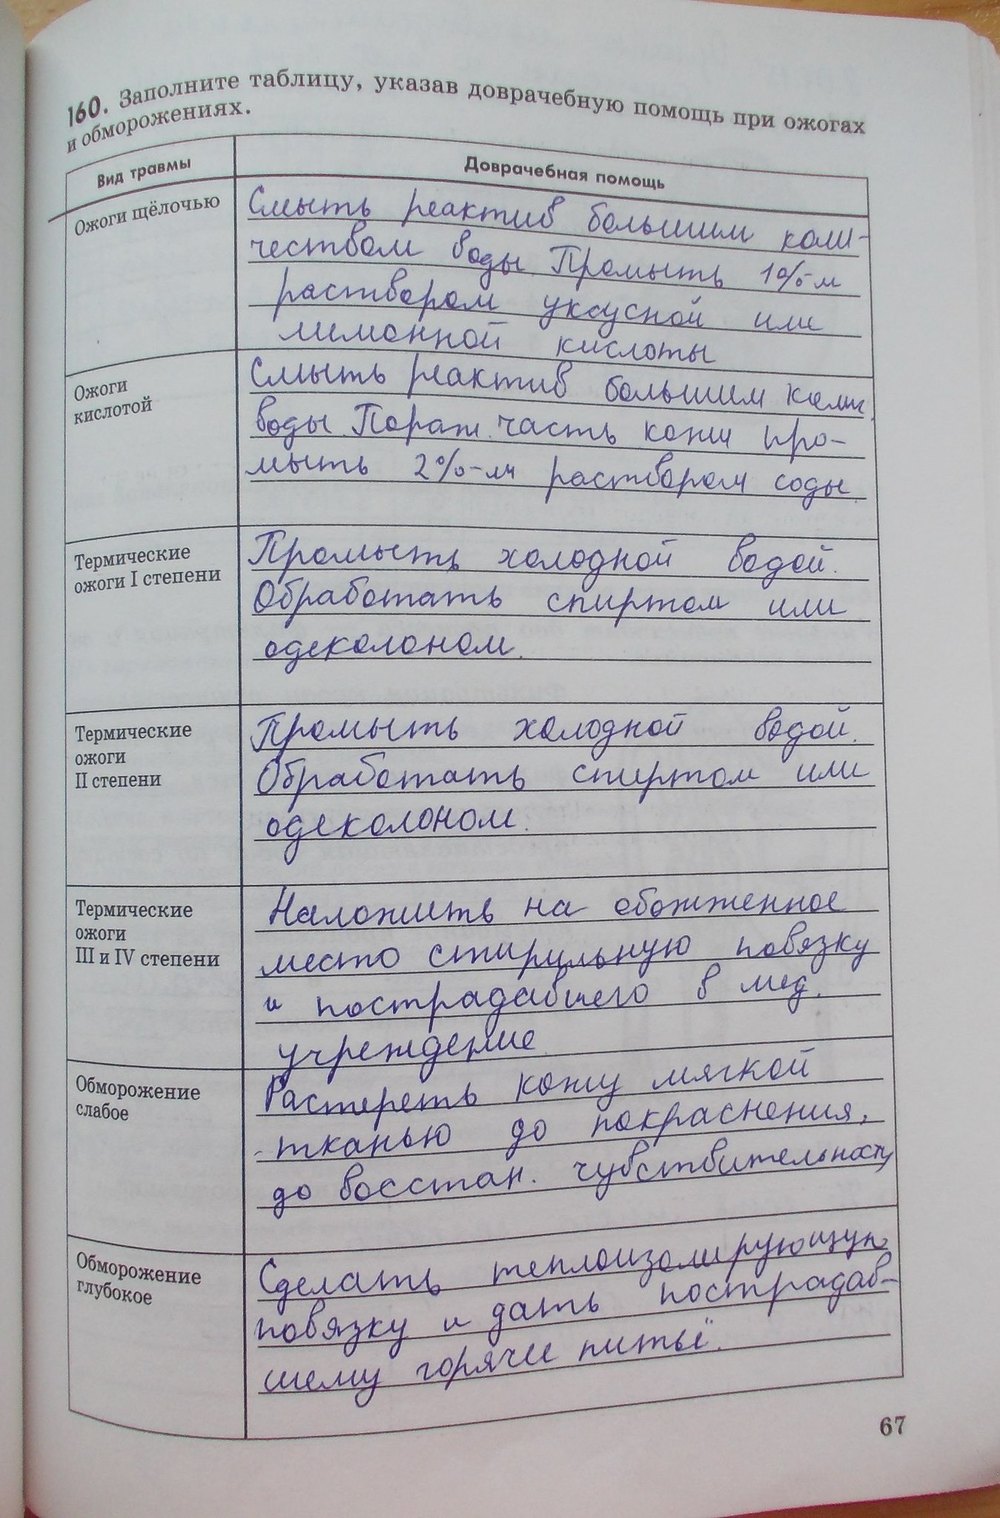 160. Заполните таблицу, указав доврачебную помощь при ожогах
и обморожениях.
Вид травмы
Доврачебная помощь
Ожоги щёлочью
Смыть реактив большим коли-
чеством воды. Промыть 1%-м
раствором уксусной или
лимонной кислоты
Ожоги
кислотой
Смыть реактив большим колич.
воды. Пораж. часть кожи про-
мыть 2%-м раствором соды.
Термические
ожоги I степени
Промыть холодной водой.
Обработать спиртом или
одеколоном.
Термические
ожоги
II степени
Промыть холодной водой.
Обработать спиртом или
одеколоном.
Термические
ожоги
III и IV степени
Наложить на обожженное
место стирульную повязку
и пострадавшего в мед.
учреждение
Обморожение
слабое
Растереть кожу мягкой
тканью до покраснения,
до восстан. чувствительности
Обморожение
глубокое
Сделать теплоизолирующую
повязку и дать пострадав-
шему горячее питьё.
67